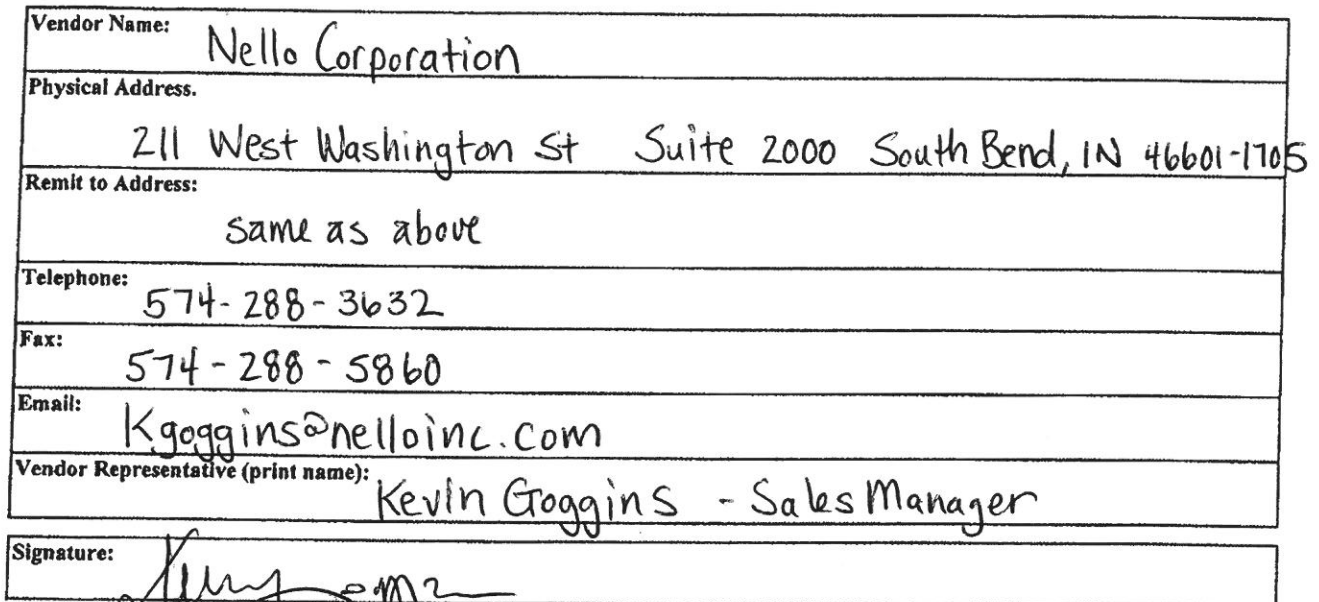 Vendor Name: Nello Corporation
Physical Address.
211 West Washington St Suite 2000 South Bend, IN 46601-1705
Remit to Address:
same as above
Telephone: 574-288-3632
Fax: 574-288-5860
Email: Kgoggins@nelloinc.com
Vendor Representative (print name): Kevin Goggins - Sales Manager
Signature: